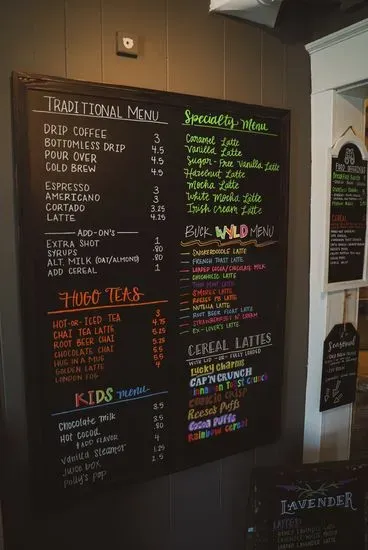 TRADITIONAL MENU
DRIP COFFEE 3
BOTTOMLESS DRIP 4.5
POUR OVER 4.5
COLD BREW 4.5
ESPRESSO 3
AMERICANO 3
CORTADO 3.25
LATTE 4.25
ADD-ON'S
EXTRA SHOT 1
SYRUPS .80
ALT. MILK (OAT/ALMOND) .80
ADD CEREAL 1
HUGO TEAS
HOT-OR-ICED TEA 3
CHAI TEA LATTE 4.75
ROOT BEER CHAI 5.25
CHOCOLATE CHAI 5.25
HUG IN A MUG 5.5
GOLDEN LATTE 5.25
LONDON FOG 4
KIDS menu
Chocolate milk 3.5
Hot Cocoa 3.5
+ADD FLAVOR .80
Vanilla Steamer 4
Juice Box 1.25
Polly's Pop 2.5
Specialty Menu
Caramel Latte
Vanilla Latte
Sugar-Free Vanilla Latte
Hazelnut Latte
Mocha Latte
White Mocha Latte
Irish Cream Latte
BUCK WYLD MENU
SNICKERDOODLE LATTE
FRENCH TOAST LATTE
LOADED COCOA/CHOCOLATE MILK
CHOCAHOLIC LATTE
THIN MINT LATTE
S'MORES LATTE
REESES PB LATTE
NUTELLA LATTE
ROOT BEER FLOAT LATTE
STRAWBERRIES N' CREAM
EX-LOVER'S LATTE
CEREAL LATTES
WITH LID -OR- FULLY LOADED
Lucky charms
CAP'N CRUNCH
Cinnamon Toast Crunch
Cookie Crisp
Reese's Puffs
Cocoa Puffs
Rainbow cereal
CEREAL
Seasonal
LAVENDER
LATTES